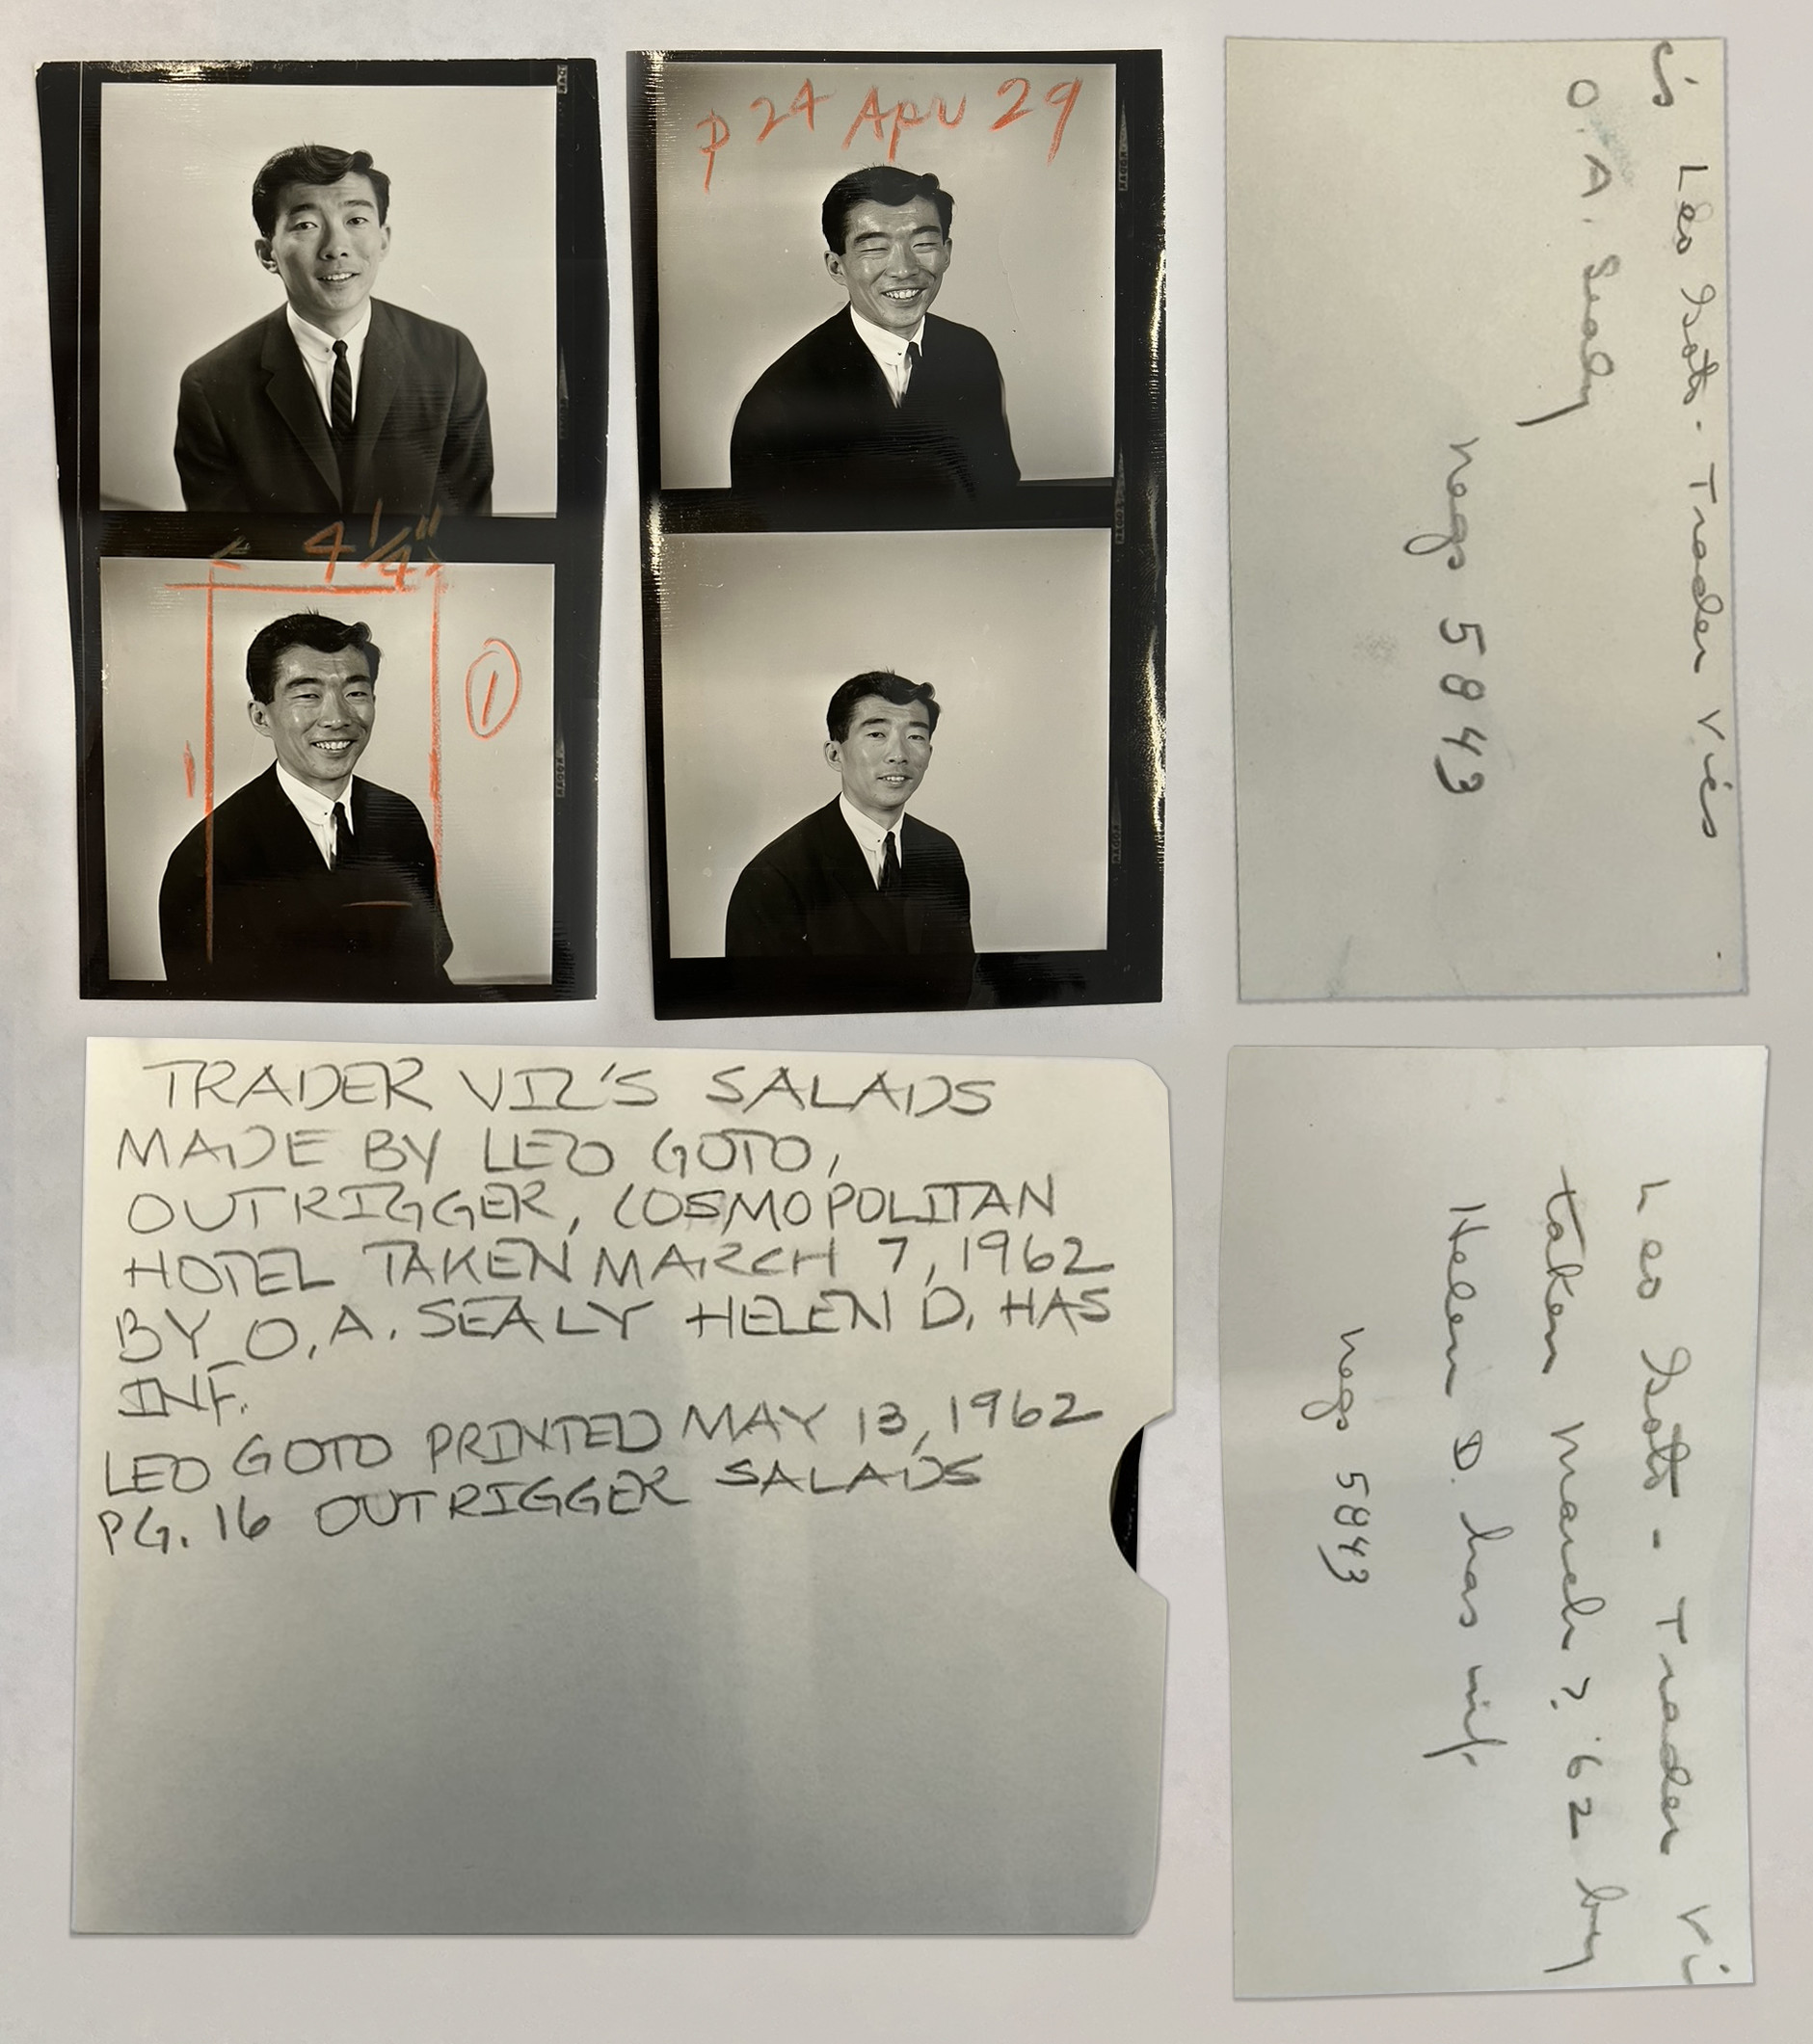 4 1/4"
1
P 24 Apr 29
is Leo Goto - Trader Vics
O. A. Sealy
negs 5843
TRADER VIC'S SALADS
MADE BY LEO GOTO,
OUTRIGGER, COSMOPOLITAN
HOTEL TAKEN MARCH 7, 1962
BY O.A. SEALY HELEN D. HAS
INF.
LEO GOTO PRINTED MAY 13, 1962
PG. 16 OUTRIGGER SALADS
Leo Goto - Trader Vi
taken March 7, '62 by
Helen D. has inf.
negs 5843